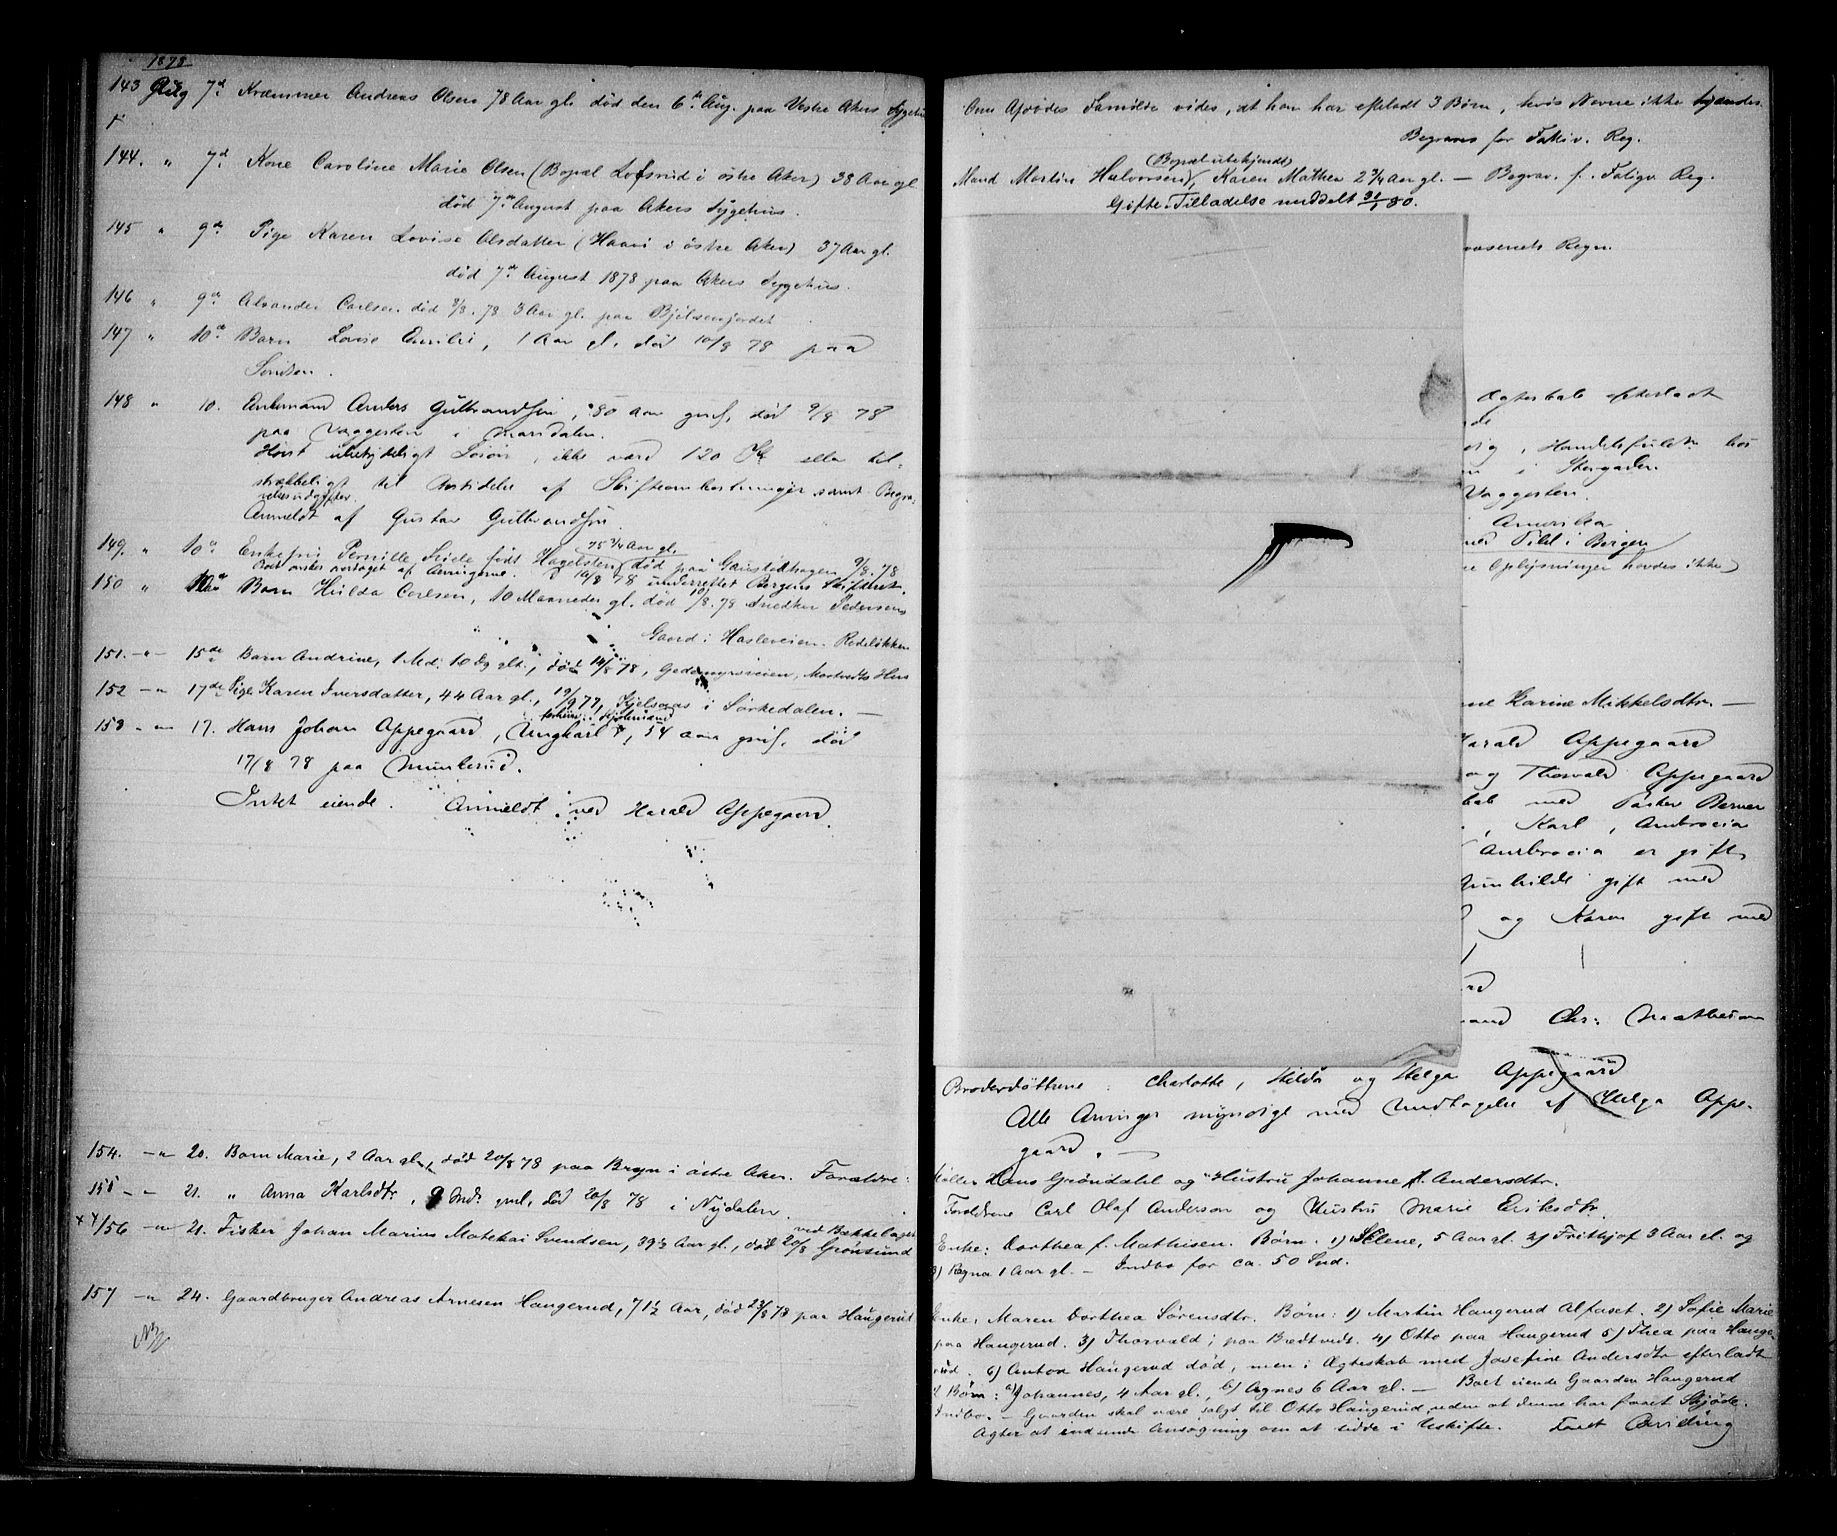 1878
143 Aug 7d. Kræmmer Andreas Olsen 78 Aar gl. død den 6te Aug. paa Vestre Akers Sygehus
144. " 7d. Kone Caroline Marie Olsen (Bopæl Lofsrud i østre Aker) 38 Aar gl
død 7de August paa Akers Sygehus.
145 " 9de Pige Karen Lovise Olsdatter (Haavi i østre Aker) 37 Aar gl.
død 7de August 1878 paa Akers Sygehus.
146 " 9de Carlsen død 8/8. 78 3 Aar gl. paa Bjølsenjordet
147 " 10de Barn Lovise Emilie, 1 Aar gl. død 10/8 78 paa
148 " 10. Enkemand Anders Gulbrandsen, 80 Aar gml, død 9/8 78
paa Vaggesten i Maridalen.
Høist ubetydeligt Løsøre, ikke værd 120 eller til-
strækkeligt til Bestridelse af Skifteomkostninger samt Begra-
velsesudgifter.
Anmeldt af Gustav Gulbrandsen.
149. " 10de Enkefru Pernille født Hagelsteen 75 3/4 Aar gl. død paa Gaustadhagen 9/8. 78
Boet ønskes overtaget af Arvingerne. 10/8 78 underrettet Bergens Skifteret.
150 " Barn Hilda Carlsen, 10 Maaneder gl. død 10/8. 78 Snedker Pedersens
Gaard i Hasleveien. Rodeløkken
151. - " - 15de Barn Andrine, 1 Md. 10 Dg glt., død 14/8 78, Geddemyrsveien, Hus
152 - " 17de Pige Karen Iversdatter, 44 Aar gl., 19/9 77, Kjelsaas i Sørkedalen. —
153 - " - 17. Hans Johan Appegaard, Ungkarl, 54 aar gml, død
17/8 78 paa Munkerud.
Intet eiende. Anmeldt ved Harald Appegaard.
154. - " 20. Barn Marie, 2 Aar gl., død 20/8 78 paa Bryn i østre Aker. Forældre:
155 - " 21. " Anna Karlsdtr, 9 Mdr. gml, død 20/8 78 i Nydalen.
156 - " 21. Fisker Johan Marius Matekai Svendsen, 39 1/2 Aar gl., død 20/8 ved Bækkelaget
Grønsund
157 - " 24. Gaardbruger Andreas Arnesen Haugerud, 71 1/2 Aar, død 23/8 78 paa Haugerud
NB
Om Afdødes Familie vides, at han har efterladt 3 Børn, hvis Navne ikke kjendes.
Begraves for Fattigv. Reg.
(Bopæl ubekjendt)
Mand Martin Halvorsen, Karen Mathea 2 3/4 Aar gl. — Begrav. f. Fattigv Reg.
Gifte-Tilladelse meddelt 31/1 80.
væsenets Regn.
Ægteskab efterladt
de
Handelsfuldm hos
i Storgaden.
Vaggesten.
Amerika
i Bergen
Oplysninger havdes ikke
ne Karine Mikkelsdtr. —
Harald Appegaard
og Thorvald Appegaard
kab med Pastor Berner
, Karl, Ambrosia
Ambrosia er gift
gift med
og Karen gift med
Chr. Mathiesen
Broderdøttrene: Charlotte, Hilda og Helga Appegaard
Alle Arvinger myndige med Undtagelse af Helga Appe-
gaard. —
Møller Hans Grøndahl og Hustru Johanne f. Andersdtr.
Forældrene Carl Olaf Anderson og Hustru Marie Eriksdtr.
Enke: Dorthea f. Mathisen. Børn. 1) Selene, 5 Aar gl. 2) Frithjof 3 Aar gl. og
3) Ragna 1 Aar gl. — Indbo for ca. 50 Spd.
Enke: Maren Dorthea Sørensdtr. Børn: 1) Martin Haugerud Alfaset. 2) Sofie Marie
paa Haugerud. 3) Thorvald, paa Bredtvedt. 4) Otto paa Haugerud 5) Thea paa Hauge-
rud. 6) Anton Haugerud død, men i Ægteskab med Josefine Andersdtr efterladt
2 Børn: a) Johannes, 4 Aar gl., b) Agnes 6 Aar gl. — Boet eiende Gaarden Haugerud
Indbo. — Gaarden skal være solgt til Otto Haugerud, uden at denne har faaet Skjøde.
Agter at indsende Ansøgning om at sidde i Uskifte.